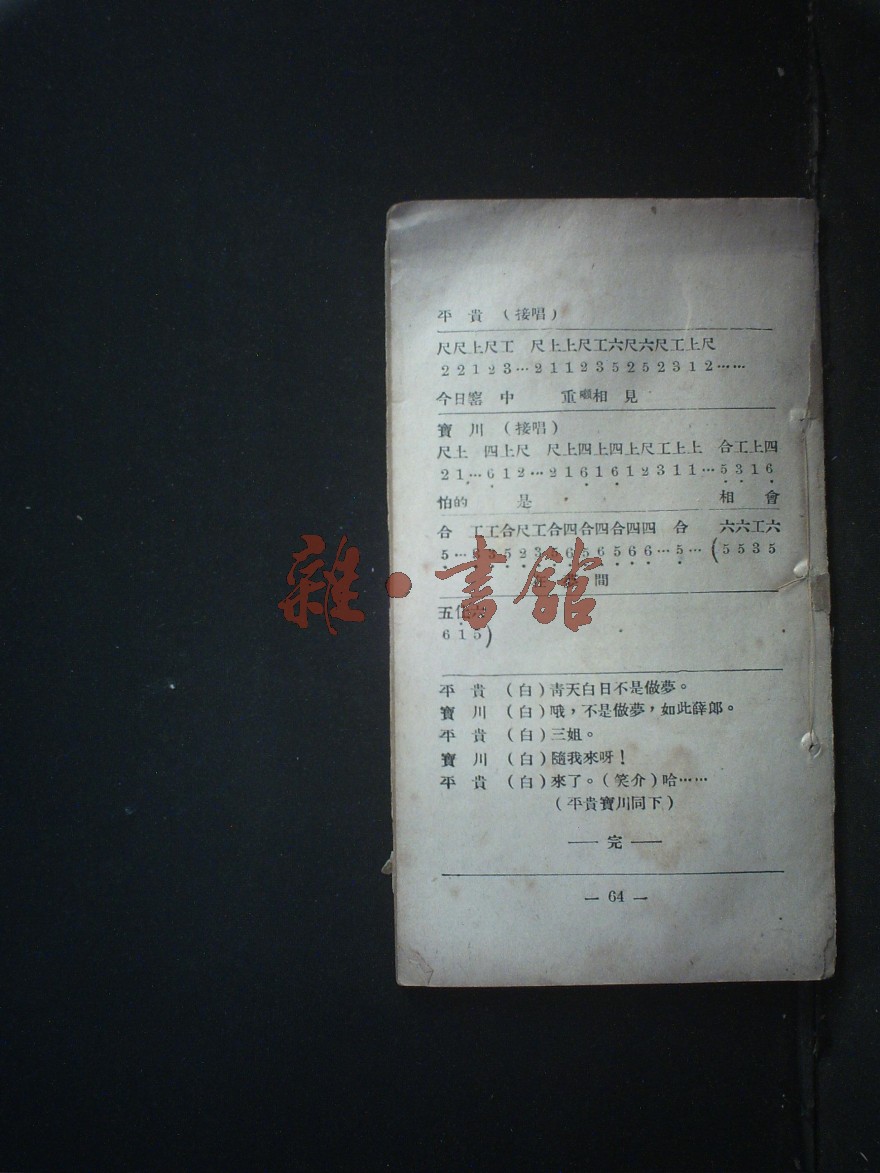 平貴（接唱）
尺尺上尺工 尺上上尺工六尺六尺工上尺
2 2 1 2 3…2 1 1 2 3 5 2 5 2 3 1 2……
今日窰中 重 相見
寶川（接唱）
尺上 四上尺 尺上四上四上尺工上上 合工上四
2 1…6 1 2…2 1 6 1 6 1 2 3 1 1…5 3 1 6
怕的 是 相會
合 工工合尺工合四合四合四四 合 六六工六
5… 3 5 2 3 5 6 5 6 5 6 6…5…(5 5 3 5
間
五仩六
6 1 5)
平貴（白）青天白日不是做夢。
寶川（白）哦，不是做夢，如此薛郎。
平貴（白）三姐。
寶川（白）隨我來呀！
平貴（白）來了。（笑介）哈……
（平貴寶川同下）
—— 完 ——
— 64 —
雜·書館